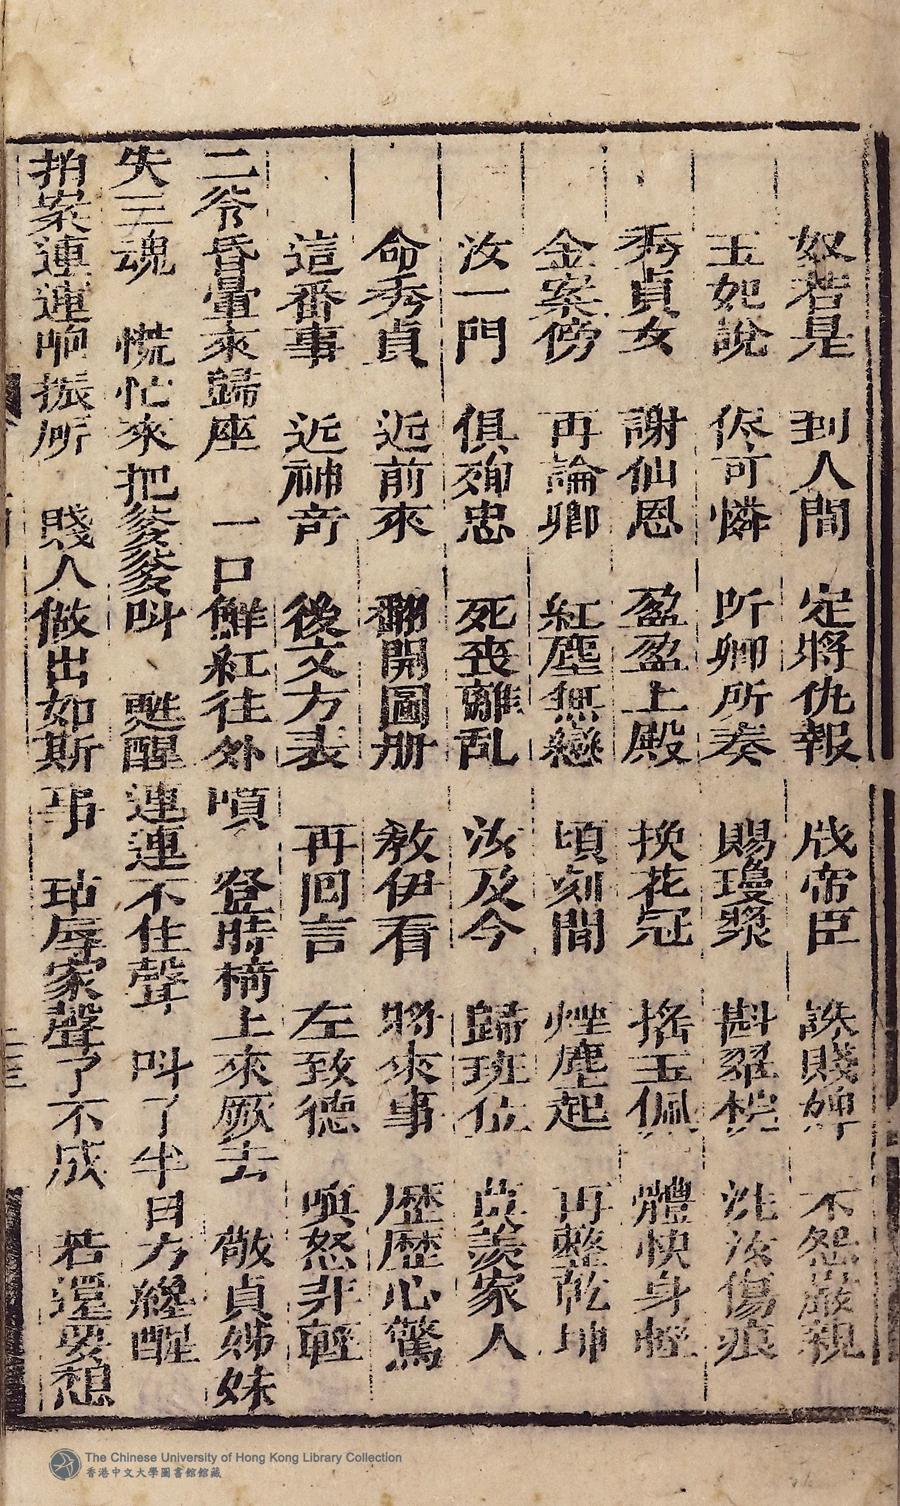 奴若是　到人間　定將仇報　戕帝臣　誅賤婢　不怨嚴親
玉妃說　侭可憐　昕卿所奏　賜瓊漿　斟翠桮　洗汝傷痕
秀貞女　謝仙恩　盈盈上殿　換花冠　搖玉佩　體快身輕
金案傍　再論卿　紅塵無戀　頃刻間　煙塵起　再整乾坤
汝一門　俱殉忠　死丧離乱　汝及今　歸班位　莫羨家人
命秀貞　近前來　翻開圖册　教伊看　將來事　歷歷心驚
這番事　近神奇　後文方表　再回言　左致德　嗔怒非輕
二爷昏暈來歸座　一口鮮紅往外噴　登時椅上來厥去　敬貞姊妹
失三魂　慌忙來把爹爹叫　甦醒連連不住聲　叫了半日方纔醒
拍案連連响振所　賤人做出如斯事　玷辱家聲了不成　若還要想
The Chinese University of Hong Kong Library Collection
香港中文大學圖書館館藏